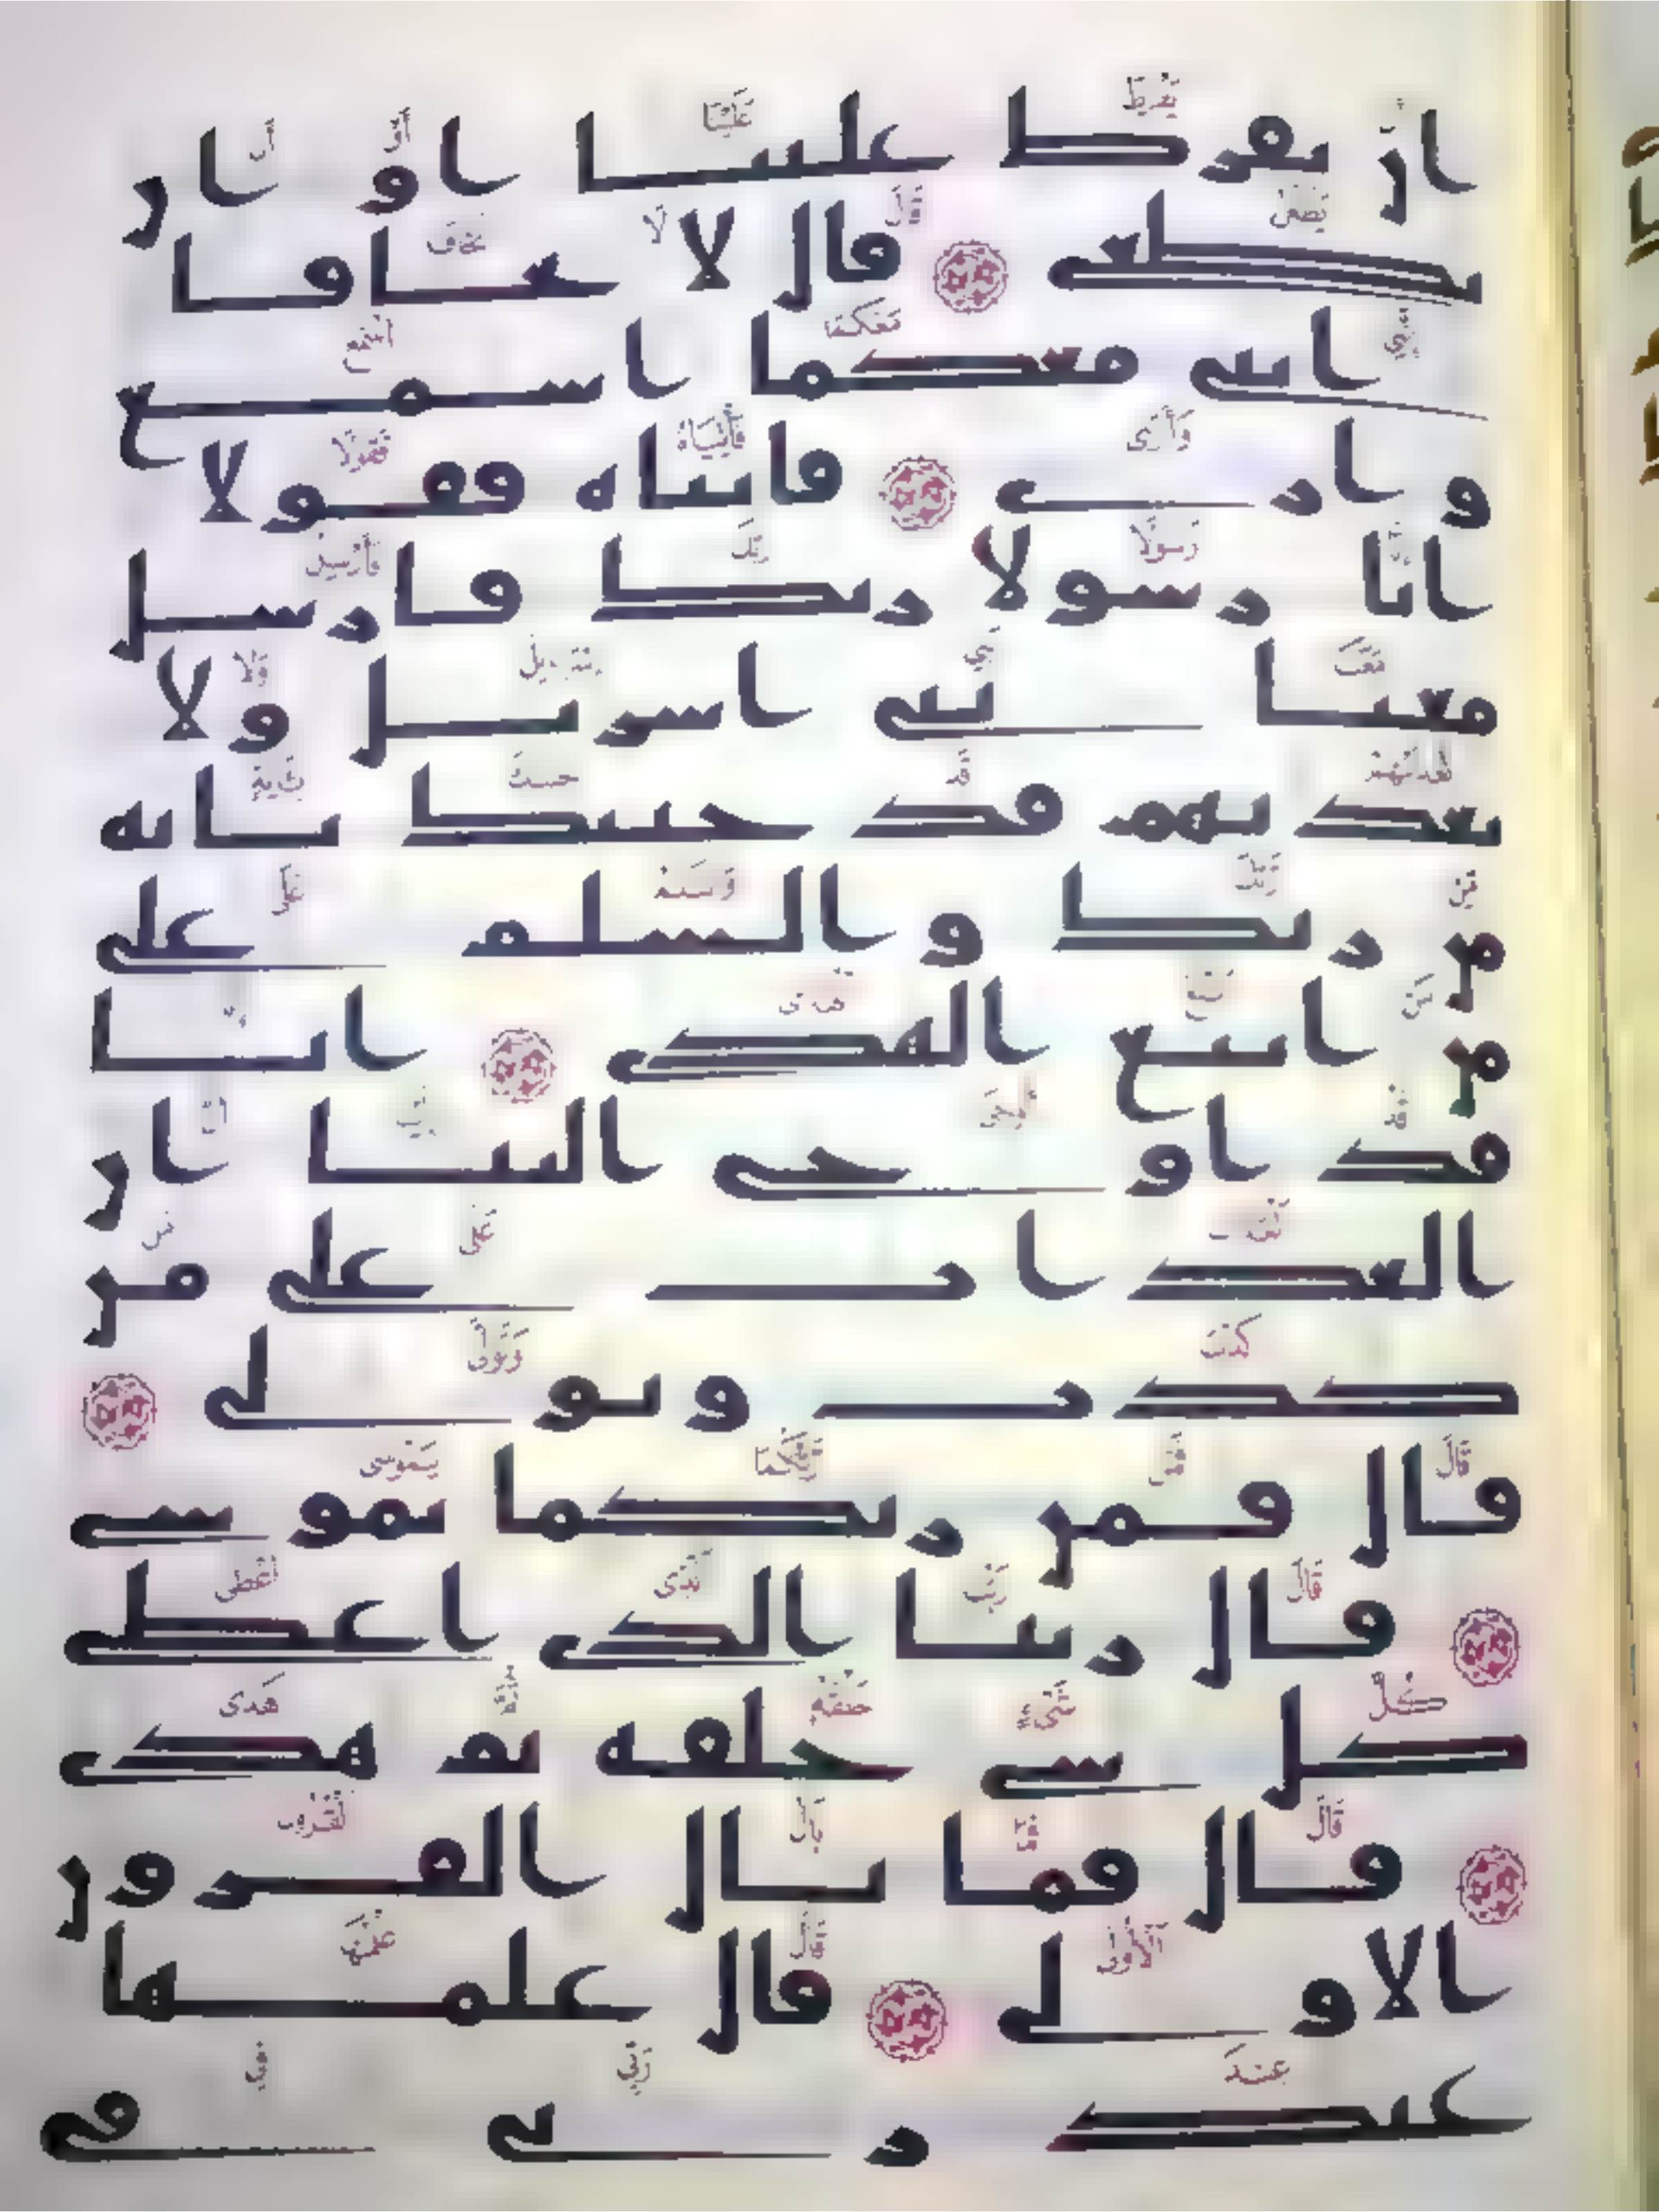 ان يفرط علينا او ان
يطغى قال لا تخافا
اننى معكما اسمع
وارى فاتياه فقولا
انا رسولا ربك فارسل
معنا بنى اسريل ولا
تعذبهم قد جئنك باية
من ربك والسلم على
من اتبع الهدى انا
قد اوحى الينا ان
العذاب على من
كذب وتولى
قال فمن ربكما يموسى
قال ربنا الذى اعطى
كل شى خلقه ثم هدى
قال فما بال القرون
الاولى قال علمها
عند ربى فى